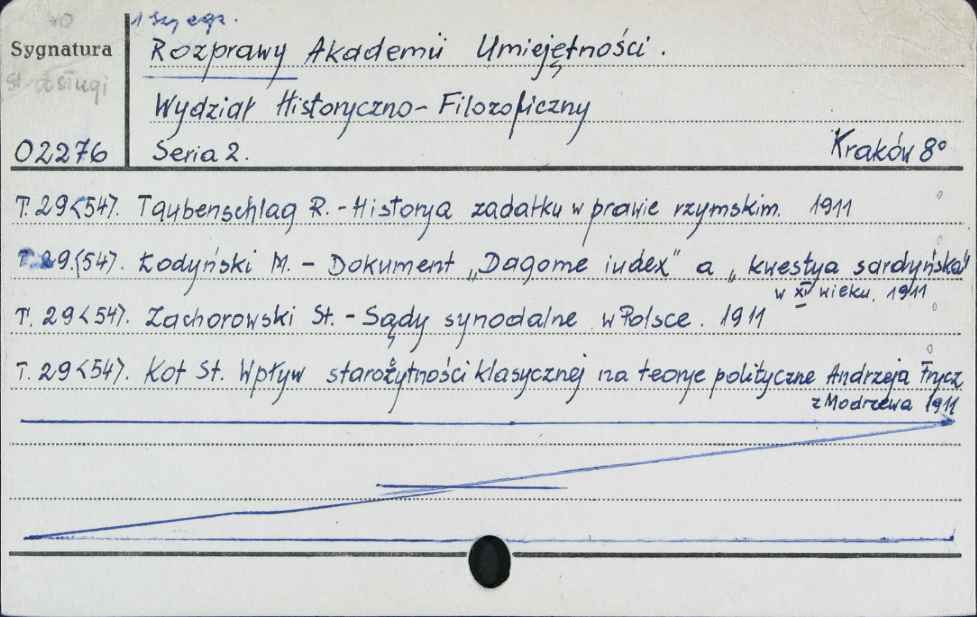 1 szy egz.
Sygnatura
Rozprawy Akademii Umiejętności.
Wydział Historyczno-Filozoficzny
02276 Seria 2. Kraków 8°
T. 29<54>. Taubenschlag R. - Historya zadatku w prawie rzymskim. 1911
T. 29.<54>. Łodyński M. - Dokument „Dagome iudex" a „kwestya sardyńska"
w XI wieku. 1911
T. 29<54>. Zachorowski St. - Sądy synodalne w Polsce. 1911
T. 29<54>. Kot St. Wpływ starożytności klasycznej na teorye polityczne Andrzeja Frycz
z Modrzewa 1911